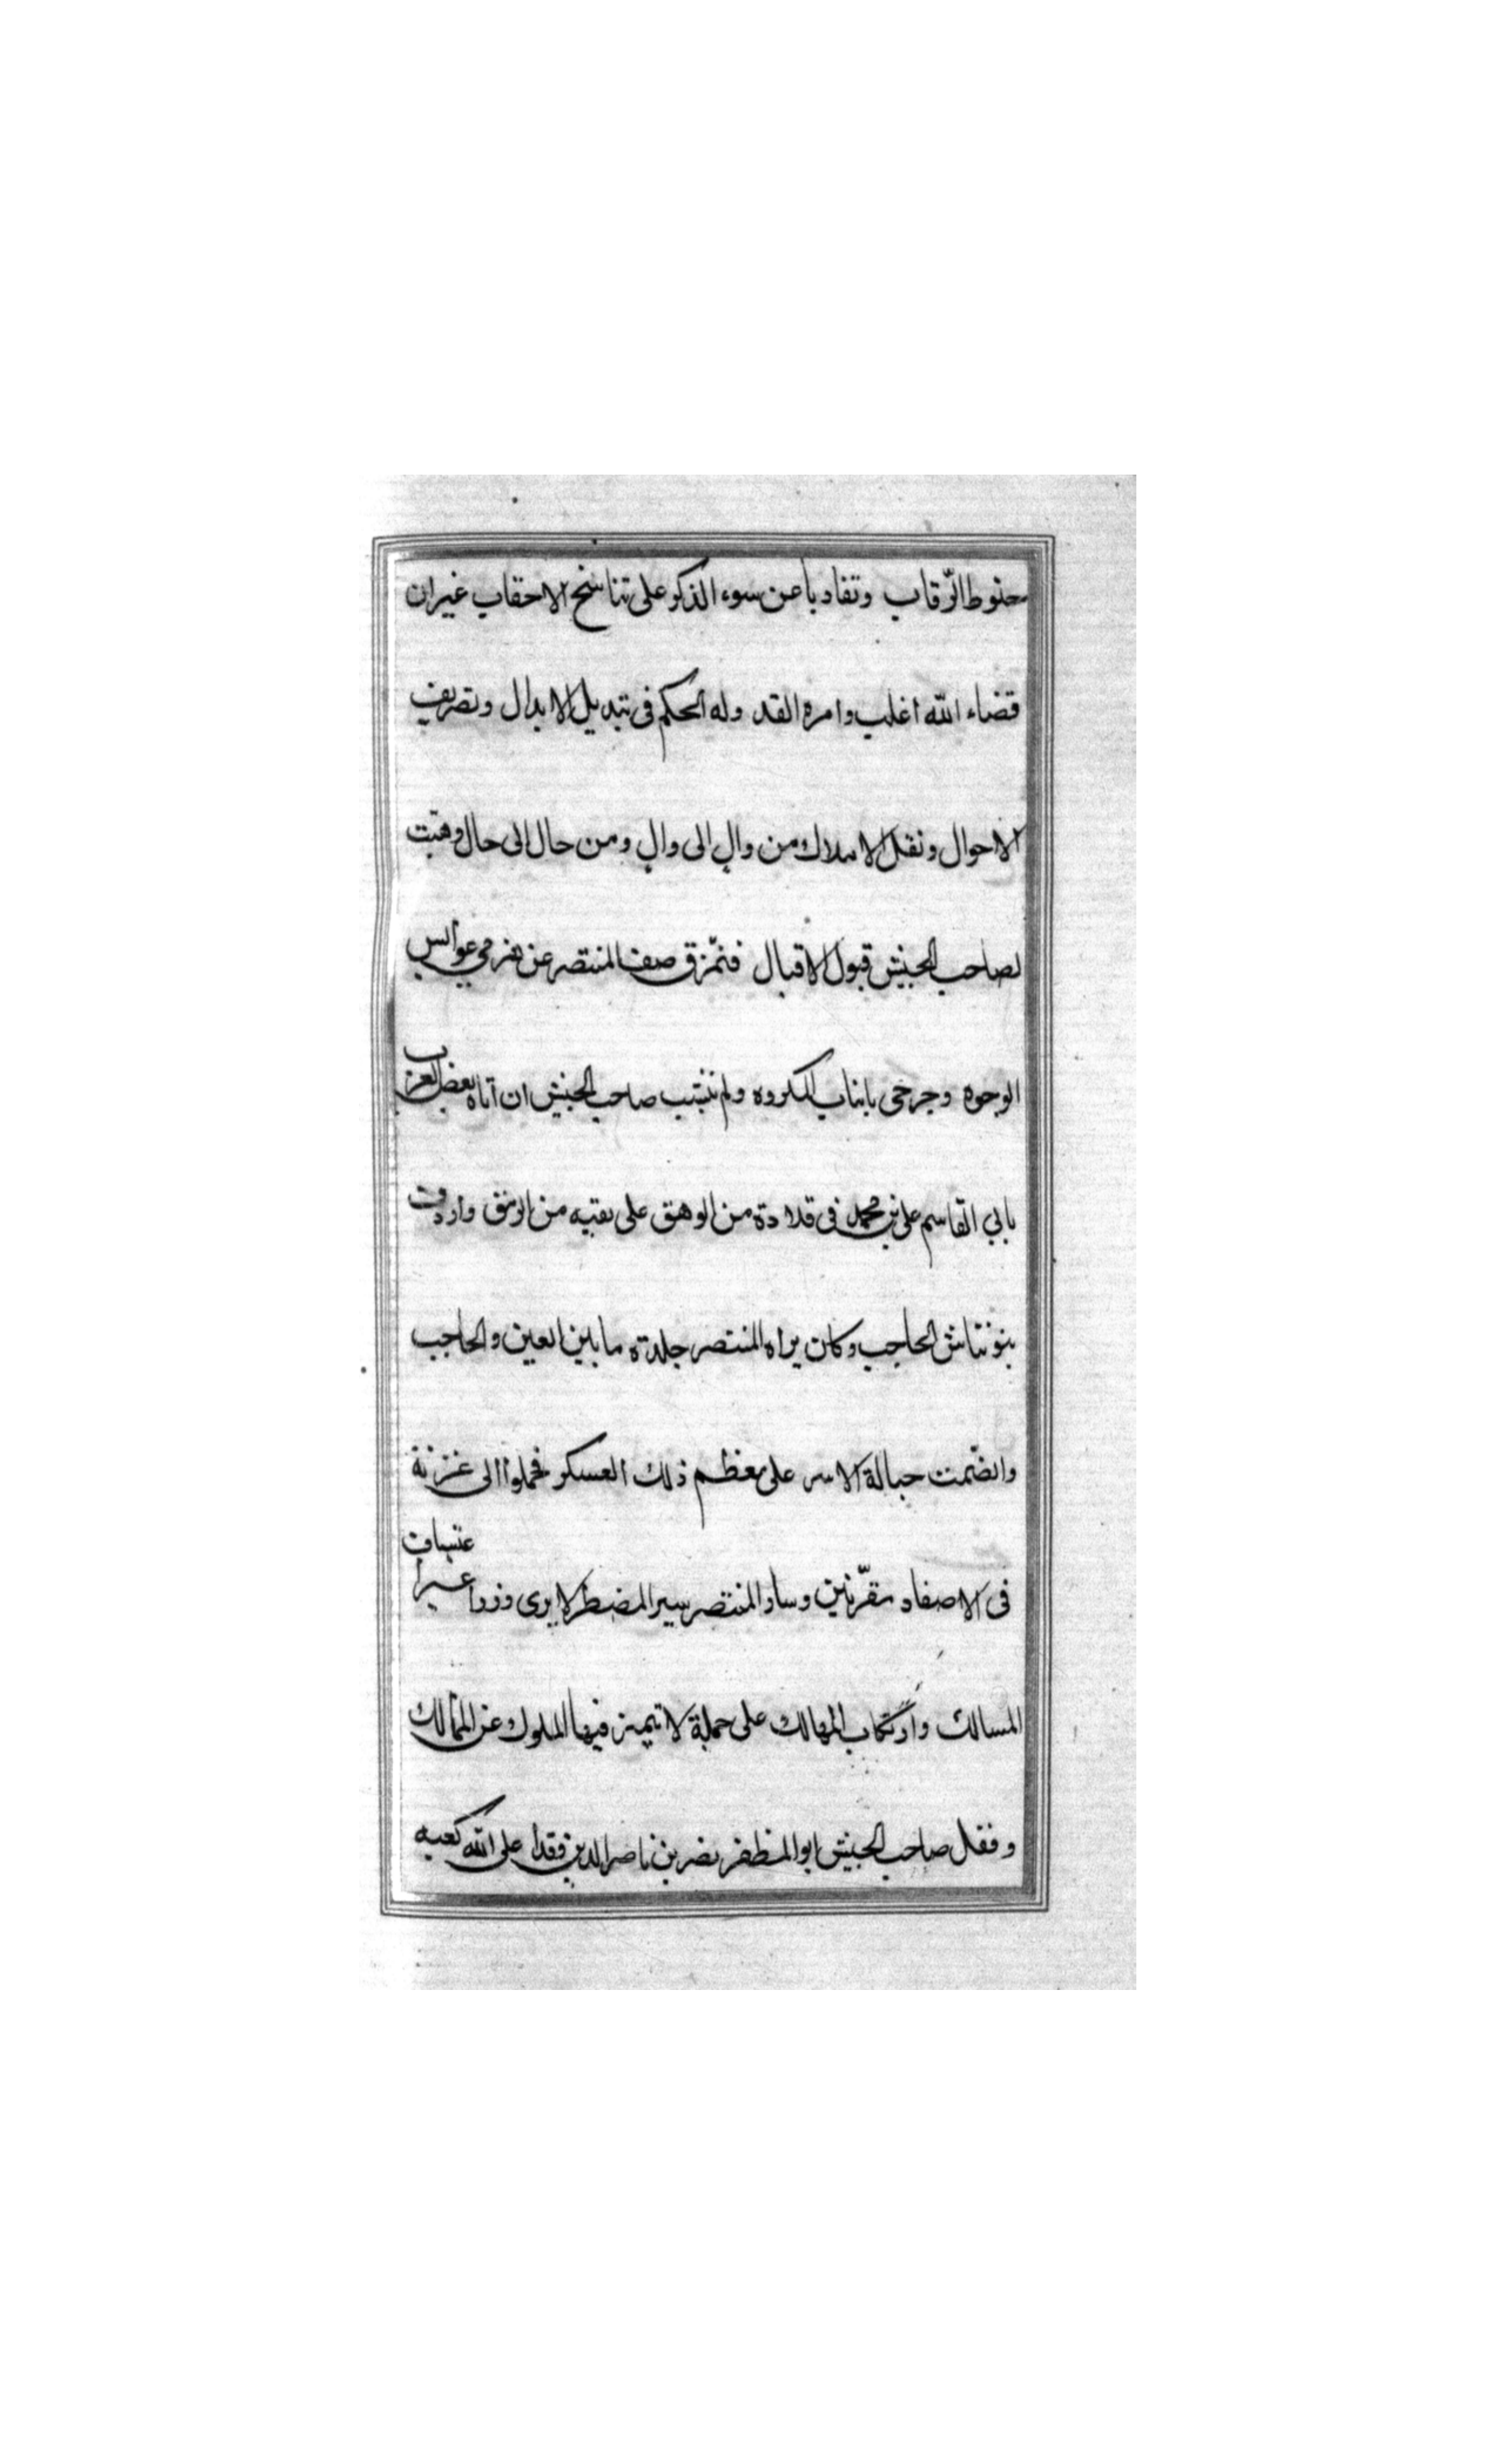 حنوط الرّقاب وتفاديا عن سوء الذكر على تناسخ الاحقاب غير ان
قضاء الله اغلب وامره انفذ وله الحكم فى تبديل الابدال وتصريف
الاحوال ونقل الاملاك من وال الى وال ومن حال الى حال وهبّت
لصاحب الجيش قبول الاقبال فتمزّق صف المنتصر عن هزمى عوابس
الوجوه وجرحى بانياب المكروه ولم ينشب صاحب الجيش ان اتاه بعض العرب
بابي القاسم على بن محمد فى قلادة من الوهق على بقيه من الرمق واردفت
بتوزتاش الحاجب وكان يراه المنتصر جلدة ما بين العين والحاجب
وانضّمت حبالة الاسر على معظم ذلك العسكر فحملوا الى غزنة
فى الاصفاد مقرّنين وسار المنتصر سير المضطر لا يرى وزرا غير اعتساف
المسالك وارتكاب المهالك على حملة لا تتميز فيها الملوك عن الممالك
وقفل صاحب الجيش ابو المظفر نصر بن ناصر الدين وقد اعلى الله كعبه